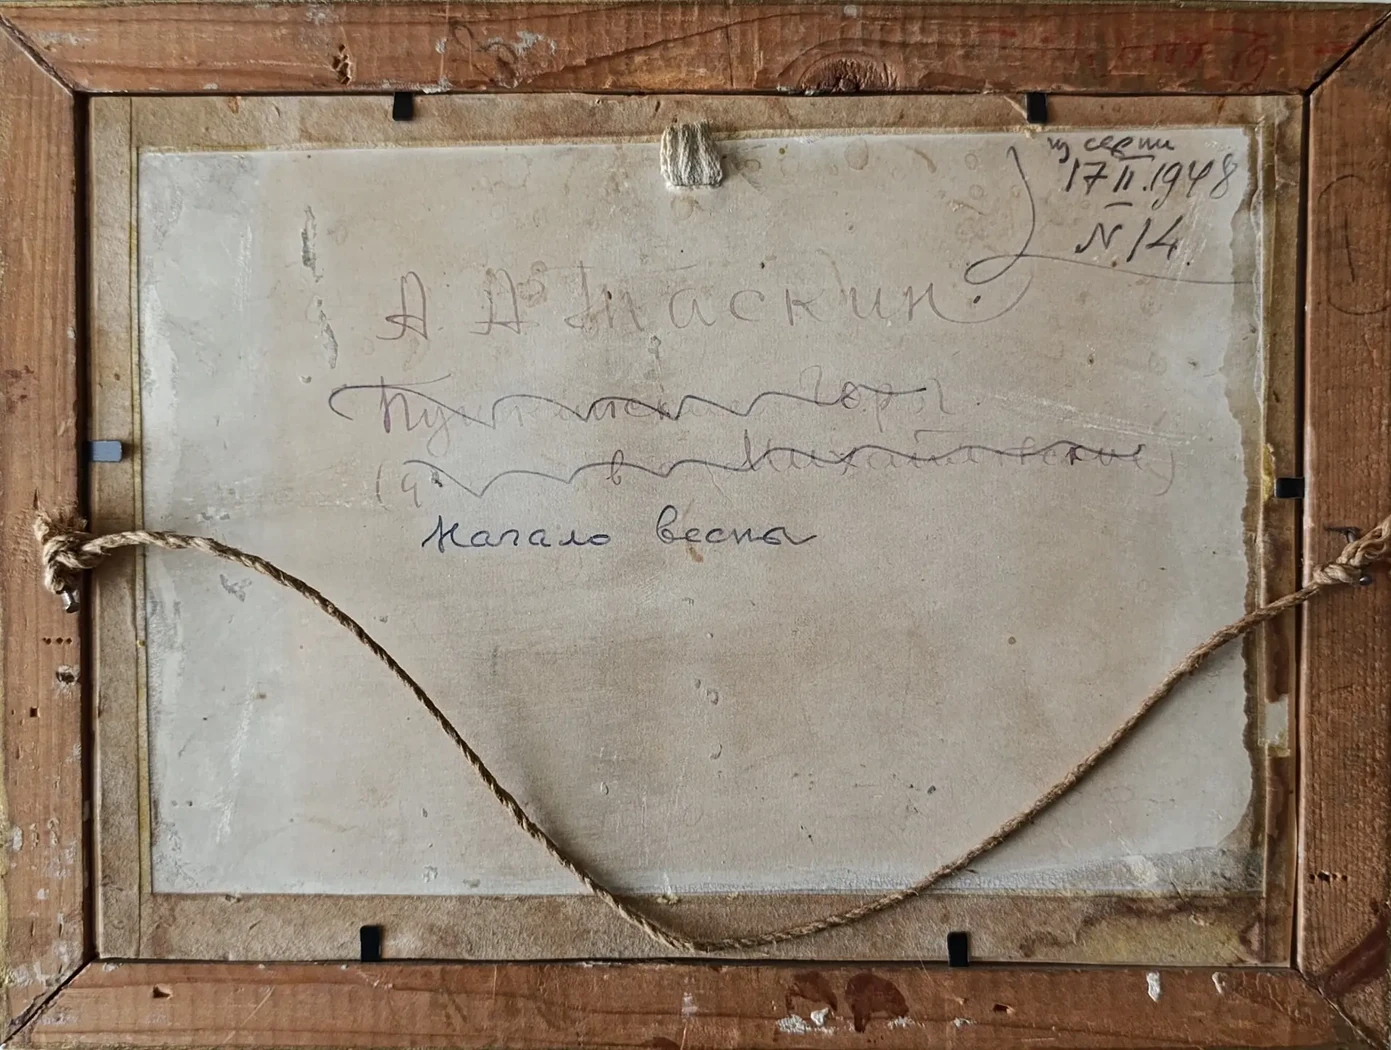 из серии
17 II. 1948
N. 14.
А. А. Таскин.
Пушкинские Горы
( в Михайловское)
Начало весны